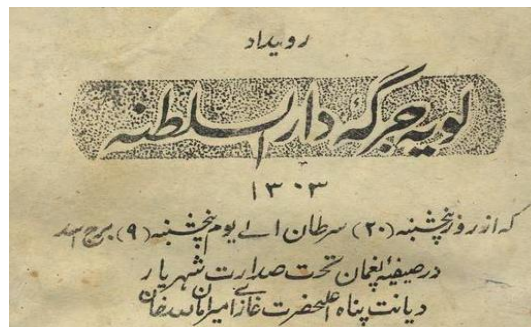 رویداد
لویه جرگهٔ دار السلطنه
۱۳۰۳
که از روز پنجشنبه (۲۰) سرطان الے یوم پنچشنبه (۹) برج اسد
در صیفیهٔ پغمان تحت صدارت شهریار
دیانت پناه اعلیحضرت غازے امیر امان الله خان